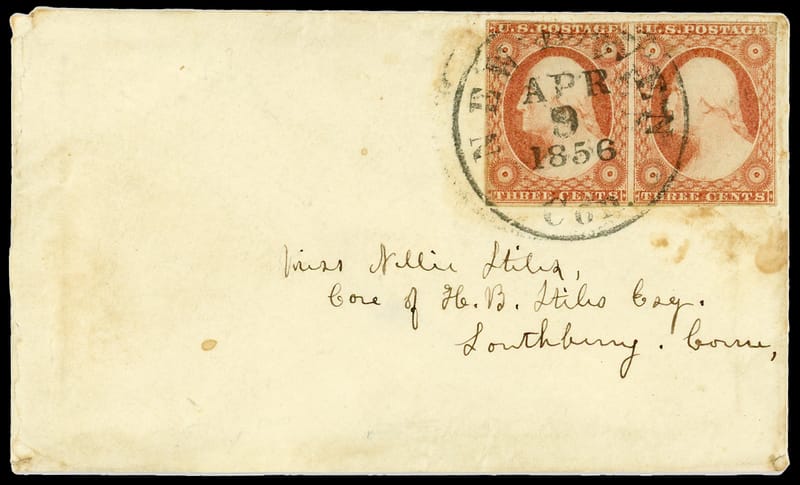 U.S. POSTAGE U.S. POSTAGE
NEW HAVEN
APR
9
1856
Con.
THREE CENTS THREE CENTS
Miss Nellie Stiles,
Care of H. B. Stiles Esq.
Southbury. Conn,